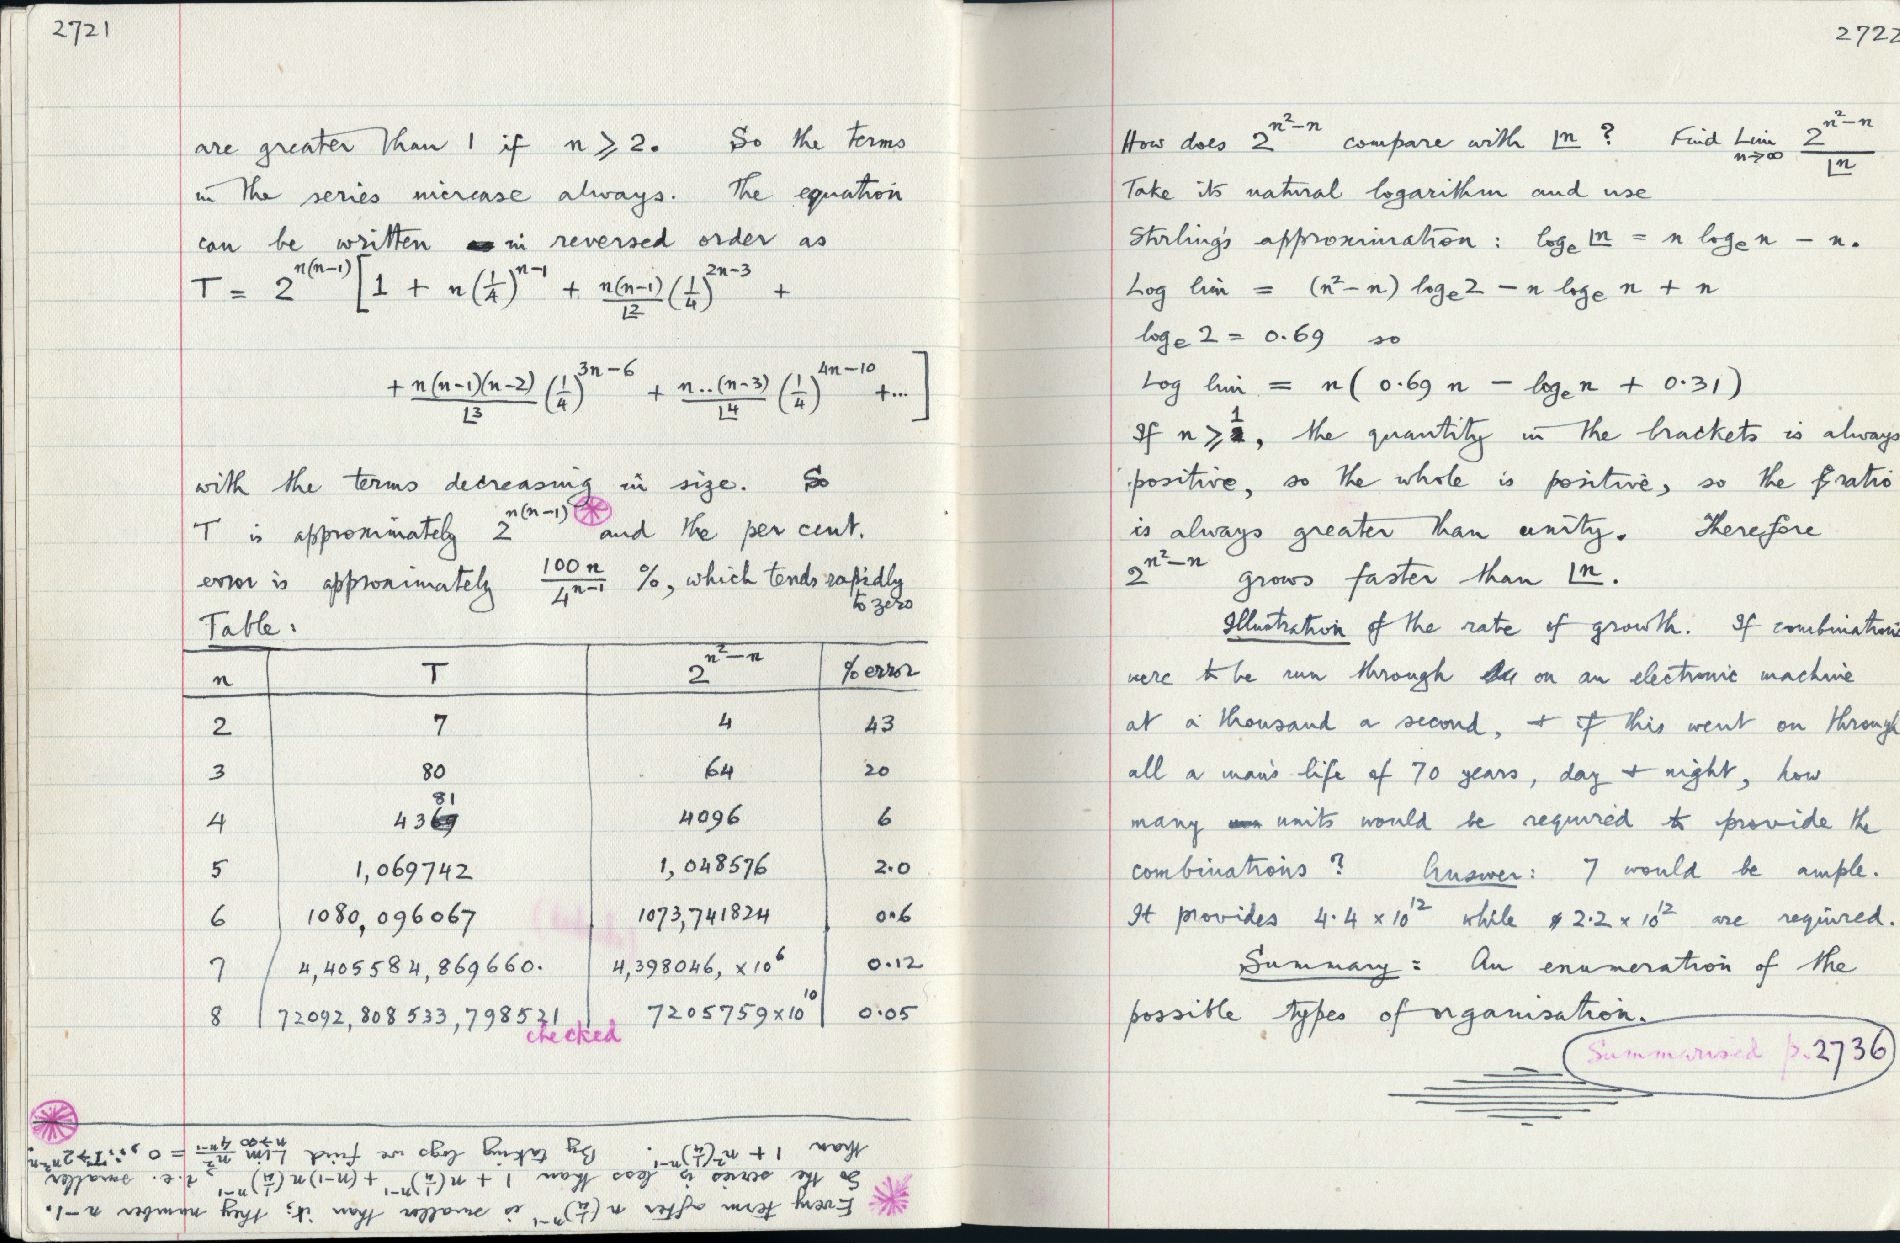 2721
are greater than 1 if n ⩾ 2. So the terms
in the series increase always. The equation
can be written in reversed order as
T = 2^{n(n-1)} [1 + n(1/4)^{n-1} + n(n-1)/⌊2 (1/4)^{2n-3} +
+ n(n-1)(n-2)/⌊3 (1/4)^{3n-6} + n..(n-3)/⌊4 (1/4)^{4n-10} +...]
with the terms decreasing in size. So
T is approximately 2^{n(n-1)} and the per cent.
error is approximately 100n/4^{n-1} %, which tends rapidly
to zero
Table:
n T 2^{n²-n} % error
2 7 4 43
3 80 64 20
4 4381 4096 6
5 1,069742 1,048576 2.0
6 1080,096067 1073,741824 0.6
7 4,405584,869660. 4,398046, ×10^6 0.12
8 72092,808533,798521 7205759×10^10 0.05
checked
Every term after n(1/4)^{n-1} is smaller than it; they number n-1.
So the series is less than 1 + n(1/4)^{n-1} + (n-1)n(1/4)^{n-1}, i.e. smaller
than 1 + n²(1/4)^{n-1}. By taking logs we find Lim n→∞ n²/4^{n-1} = 0, ∴ T→2^{n²-n}.
2722
How does 2^{n²-n} compare with ⌊n ? Find Lim n→∞ 2^{n²-n}/⌊n
Take its natural logarithm and use
Stirling's approximation: log_e ⌊n = n log_e n - n.
Log lim = (n²-n) log_e 2 - n log_e n + n
log_e 2 = 0.69 so
Log lim = n(0.69 n - log_e n + 0.31)
If n ⩾ 1, the quantity in the brackets is always
positive, so the whole is positive, so the ratio
is always greater than unity. Therefore
2^{n²-n} grows faster than ⌊n.
Illustration of the rate of growth. If combinations
were to be run through on an electronic machine
at a thousand a second, + if this went on through
all a man's life of 70 years, day + night, how
many units would be required to provide the
combinations? Answer: 7 would be ample.
It provides 4.4 × 10^12 while 2.2 × 10^12 are required.
Summary: An enumeration of the
possible types of organisation.
Summarised p. 2736